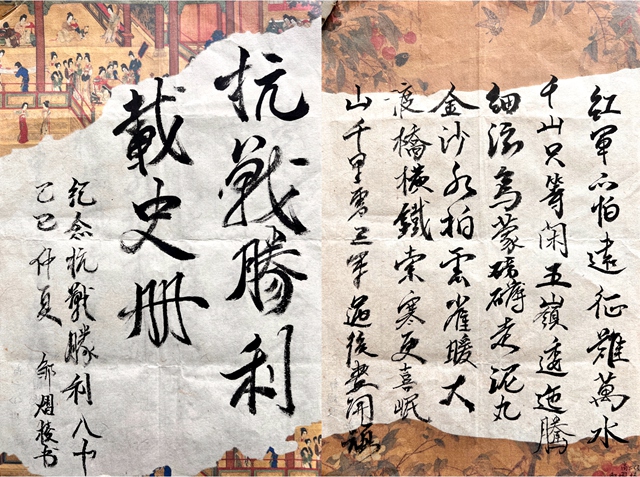 抗戰勝利
載史册
紀念抗戰勝利八十
乙巳仲夏
鄒 书
紅軍不怕遠征難萬水
千山只等闲五嶺逶迤騰
细浪烏蒙磅礴走泥丸
金沙水拍雲崖暖大
渡橋横鐵索寒更喜岷
山千里雪三軍過後盡開顔